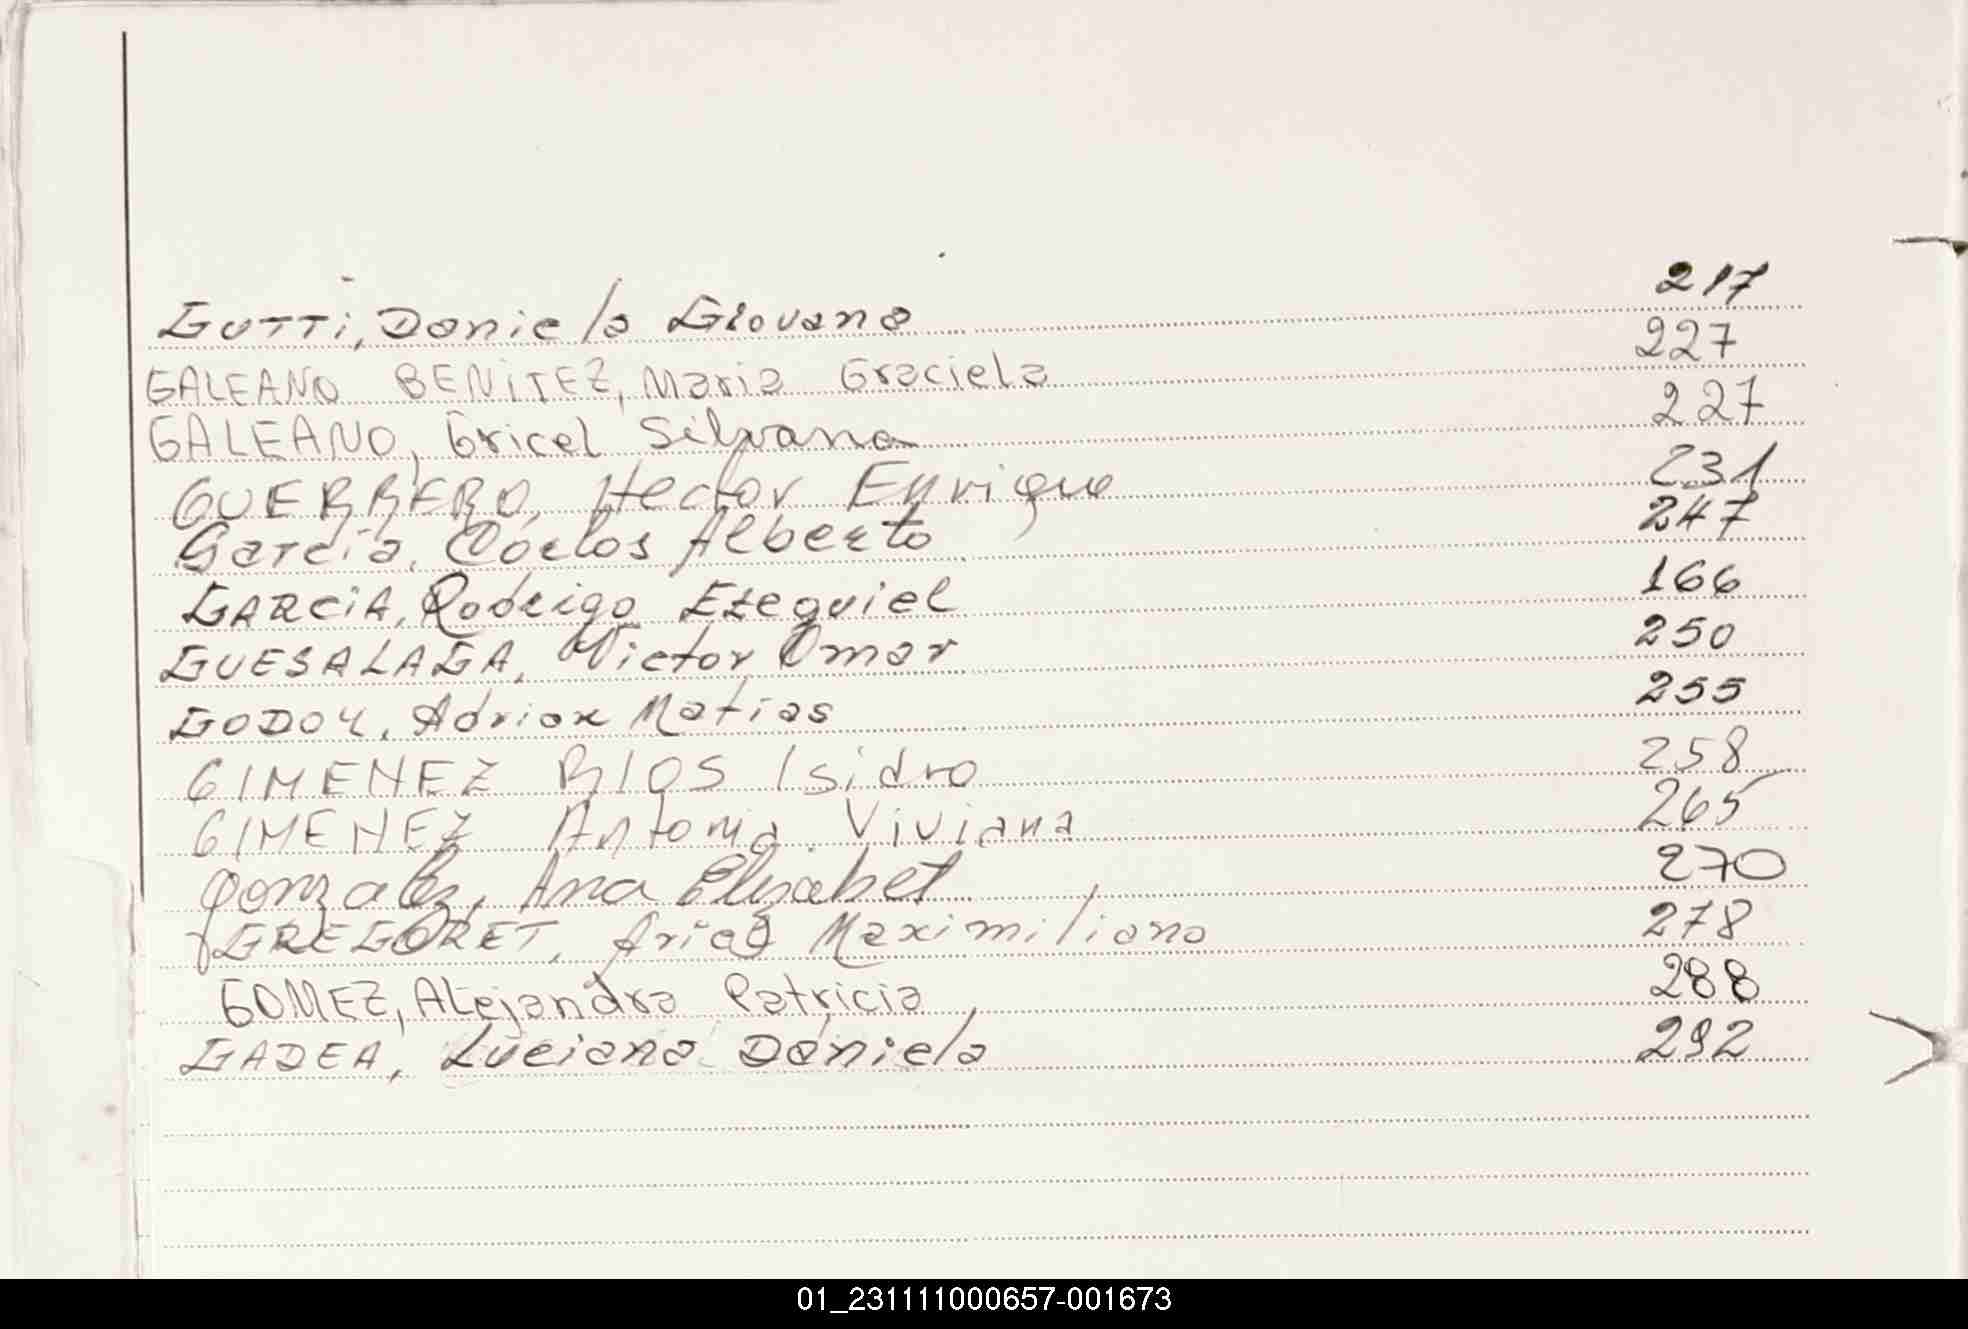 GUTTi, Daniela Giovana 217
GALEANO BENiTEZ, Maria Graciela 227
GALEANO, Gricel Silvana 227
GUERRERO, Hector Enrique 231
Garcia, Carlos Alberto 247
GARCiA, Rodrigo Ezequiel 166
GUESALAGA, Victor Omar 250
GODOY, Adrian Matias 255
GIMENEZ RIOS Isidro 258
GIMENEZ Antonia Viviana 265
Gonzalez, Ana Elizabet 270
GREGORET, Ariel Maximiliano 278
GOMEZ, Alejandra Patricia 288
GADEA, Luciana Daniela 292
01_231111000657-001673